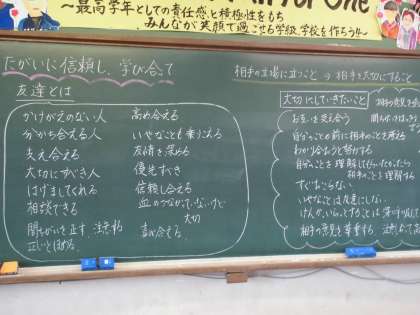 for One
～最高学年としての責任感と積極性をもち
みんなが笑顔で過ごせる学級、学校を作ろう4～
たがいに信頼し、学び合って
友達とは
かけがえのない人
分かち合える人
支え合える
大切にすべき人
はげましてくれる
相談できる
間ちがいを正す 注意する
正しいとほめる。
高め合える
いやなことも乗りこえる
友情を深める
優先すべき
信頼し合える
血のつながっていないけど
大切
言い合える
相手の立場に立つこと → 相手を大切にすること
大切にしていきたいこと
お互いを支え合う
自分のことの前に相手のことを考える
わかり合おうと努力する
自分のことを理解してもらいたかったら
相手のことも理解する
すぐおこらない
いやなことは
相手の意見を尊重する